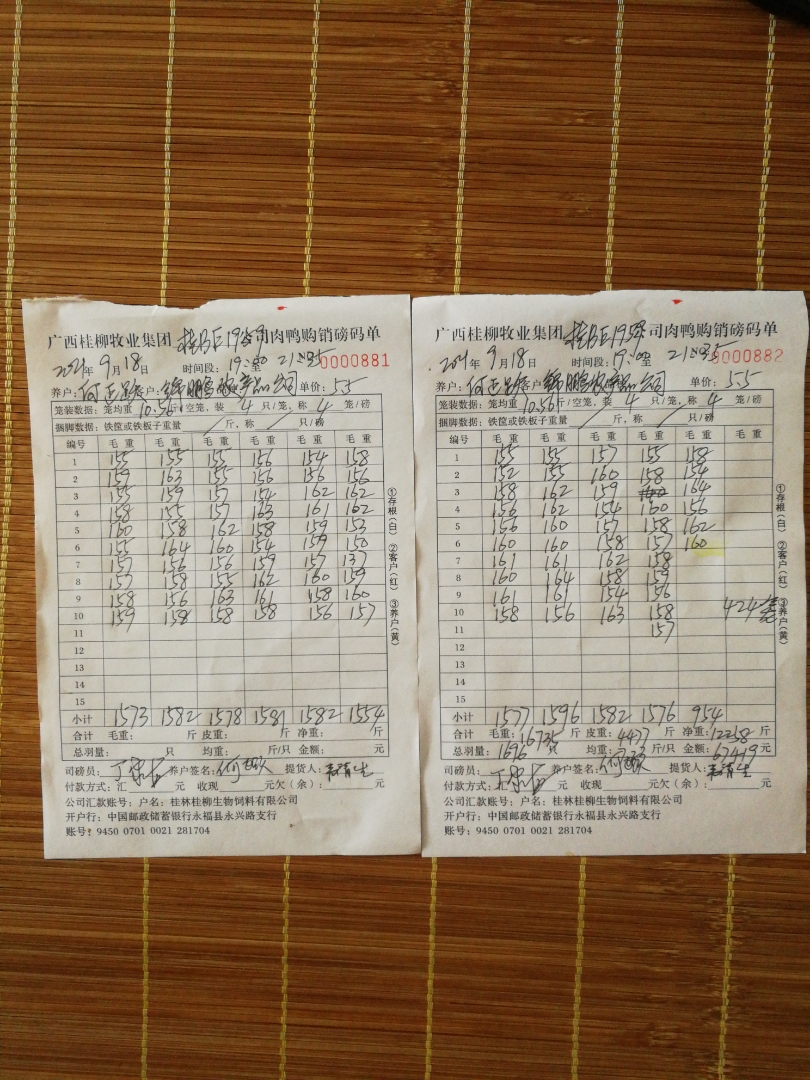 广西桂柳牧业集团 桂BE1959 司肉鸭购销磅码单
2021年 9月18日 时间段: 19:00 至 21:35 0000881
养户: 何 客户: 锦鹏 产品公司 单价: 5.5
笼装数据: 笼均重 10.56 斤/空笼, 装 4 只/笼, 称 4 笼/磅
捆脚数据: 铁筐或铁板子重量 斤, 称 只/磅
编号 毛重 毛重 毛重 毛重 毛重 毛重
1 155 155 155 156 154 158
2 159 163 155 156 156 156
3 155 159 157 154 162 162
4 158 155 157 163 161 162
5 160 158 162 158 159 153
6 155 164 160 154 159 150
7 157 156 156 159 157 137
8 157 158 155 162 160 159
9 158 156 163 161 158 160
10 159 158 158 158 156 157
11
12
13
14
15
小计 1573 1582 1578 1581 1582 1554
合计 毛重: 斤 皮重: 斤 净重: 斤
总羽量: 只 均重: 斤/只 金额: 元
司磅员: 养户签名: 何 提货人:
付款方式: 汇 元 收现 元欠(余): 元
公司汇款账号: 户名: 桂林桂柳生物饲料有限公司
开户行: 中国邮政储蓄银行永福县永兴路支行
账号: 9450 0701 0021 281704
①存根(白) ②客户(红) ③养户(黄)
广西桂柳牧业集团 桂BE1959 司肉鸭购销磅码单
2021年 9月18日 时间段: 19:00 至 21:35 0000882
养户: 何 客户: 锦鹏 产品公司 单价: 5.5
笼装数据: 笼均重 10.56 斤/空笼, 装 4 只/笼, 称 4 笼/磅
捆脚数据: 铁筐或铁板子重量 斤, 称 只/磅
编号 毛重 毛重 毛重 毛重 毛重 毛重
1 155 155 157 155 158
2 152 155 160 158 154
3 158 162 159 164
4 156 162 154 160 156
5 156 160 157 158 162
6 160 160 158 157 160
7 161 161 162 158
8 160 164 158 159
9 161 161 154 156
10 158 156 163 158 424笼
11 157
12
13
14
15
小计 1577 1596 1582 1576 954
合计 毛重: 16735 斤 皮重: 4477 斤 净重: 12258 斤
总羽量: 1696 只 均重: 斤/只 金额: 67419 元
司磅员: 养户签名: 何 提货人:
付款方式: 汇 元 收现 元欠(余): 元
公司汇款账号: 户名: 桂林桂柳生物饲料有限公司
开户行: 中国邮政储蓄银行永福县永兴路支行
账号: 9450 0701 0021 281704
①存根(白) ②客户(红) ③养户(黄)